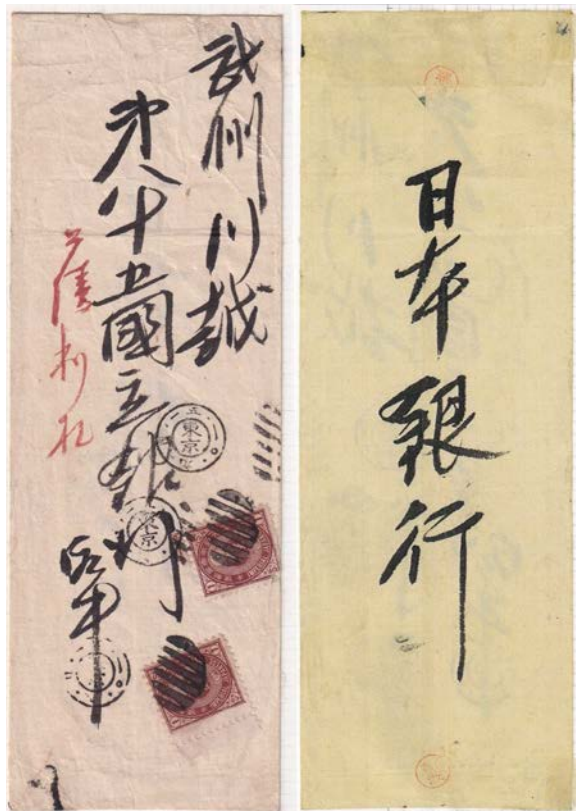 武州川越
第八十五國立銀行
御中
公債利札
東京
東京
日本銀行